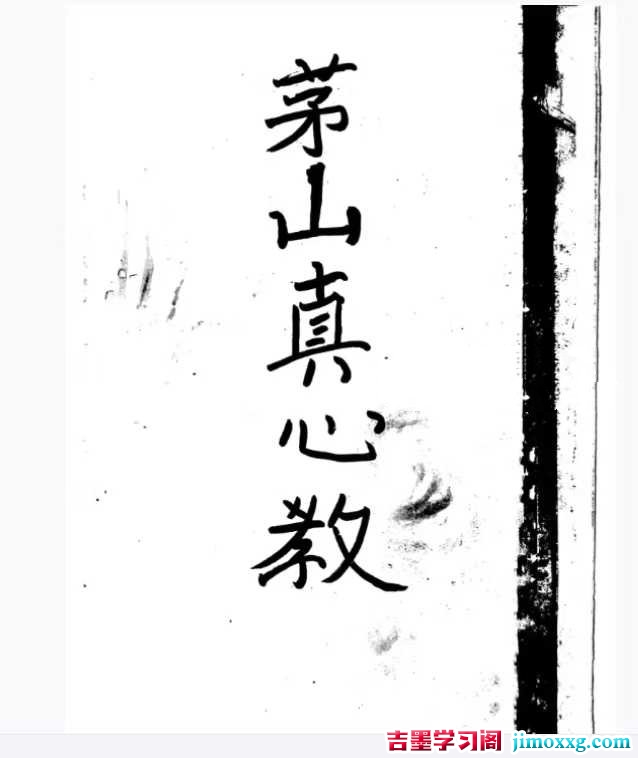 茅山真心教
吉墨学习阁 jimoxxg.com